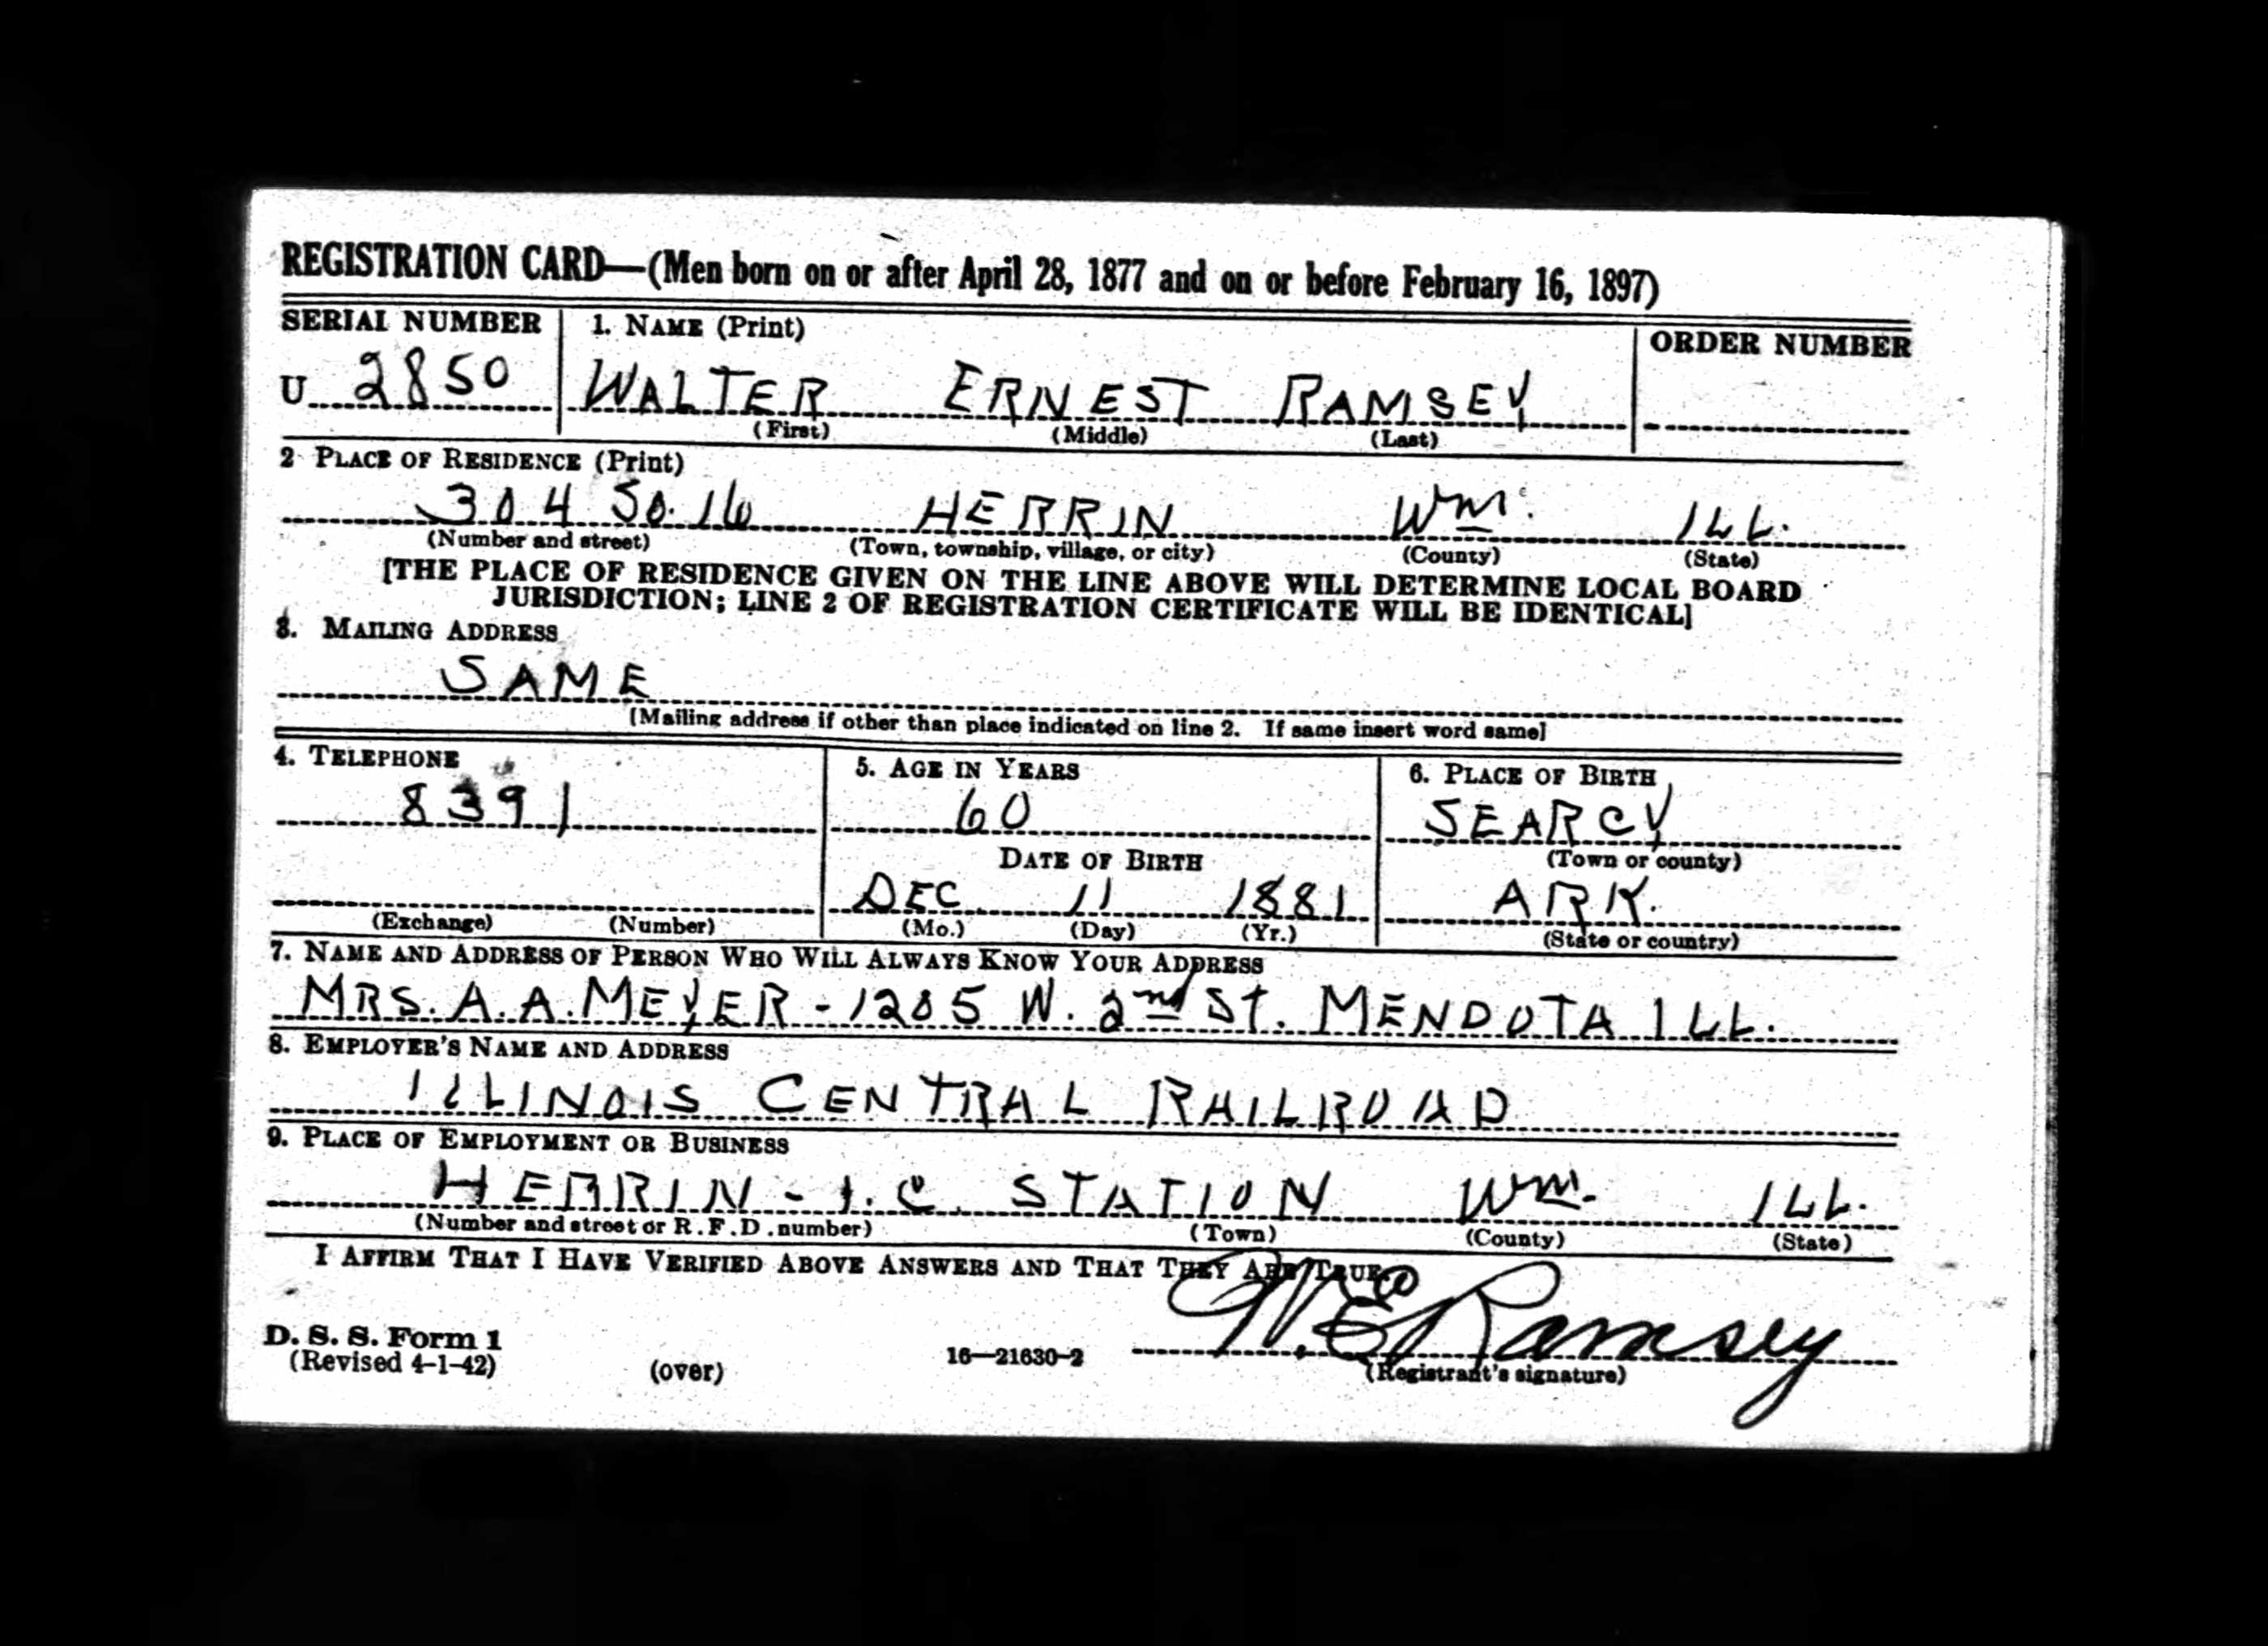 REGISTRATION CARD—(Men born on or after April 28, 1877 and on or before February 16, 1897)
SERIAL NUMBER 1. NAME (Print) ORDER NUMBER
U 2850 WALTER ERNEST RAMSEY
(First) (Middle) (Last)
2 PLACE OF RESIDENCE (Print)
304 SO. 16 HERRIN Wm. ILL.
(Number and street) (Town, township, village, or city) (County) (State)
[THE PLACE OF RESIDENCE GIVEN ON THE LINE ABOVE WILL DETERMINE LOCAL BOARD
JURISDICTION; LINE 2 OF REGISTRATION CERTIFICATE WILL BE IDENTICAL]
3. MAILING ADDRESS
SAME
[Mailing address if other than place indicated on line 2. If same insert word same]
4. TELEPHONE 5. AGE IN YEARS 6. PLACE OF BIRTH
8391 60 SEARCY
DATE OF BIRTH (Town or county)
DEC. 11 1881 ARK.
(Exchange) (Number) (Mo.) (Day) (Yr.) (State or country)
7. NAME AND ADDRESS OF PERSON WHO WILL ALWAYS KNOW YOUR ADDRESS
MRS. A. A. MEYER - 1205 W. 2nd St. MENDOTA ILL.
8. EMPLOYER'S NAME AND ADDRESS
ILLINOIS CENTRAL RAILROAD
9. PLACE OF EMPLOYMENT OR BUSINESS
HERRIN - I.C. STATION Wm. ILL.
(Number and street or R.F.D. number) (Town) (County) (State)
I AFFIRM THAT I HAVE VERIFIED ABOVE ANSWERS AND THAT THEY ARE TRUE.
W. E. Ramsey
D. S. S. Form 1
(Revised 4-1-42) (over) 16—21630-2 (Registrant's signature)